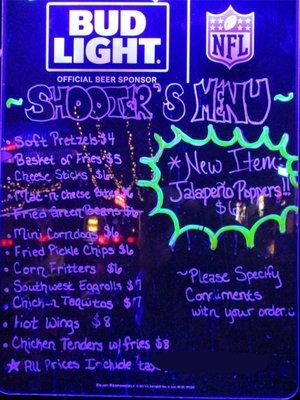 BUD
LIGHT.
NFL
OFFICIAL BEER SPONSOR
SHOOTER'S MENU
Soft Pretzels $4
Basket of Fries $5
Cheese Sticks $6
Mac-n-Cheese Bites $6
Fried Green Beans $6
Mini Corndogs $6
Fried Pickle Chips $6
Corn Fritters $6
Southwest Eggrolls $7
Chicken Taquitos $7
Hot Wings $8
Chicken Tenders w/fries $8
All Prices Include tax
* New Item
Jalapeño Poppers!!
$6
~Please Specify
Condiments
with your order.